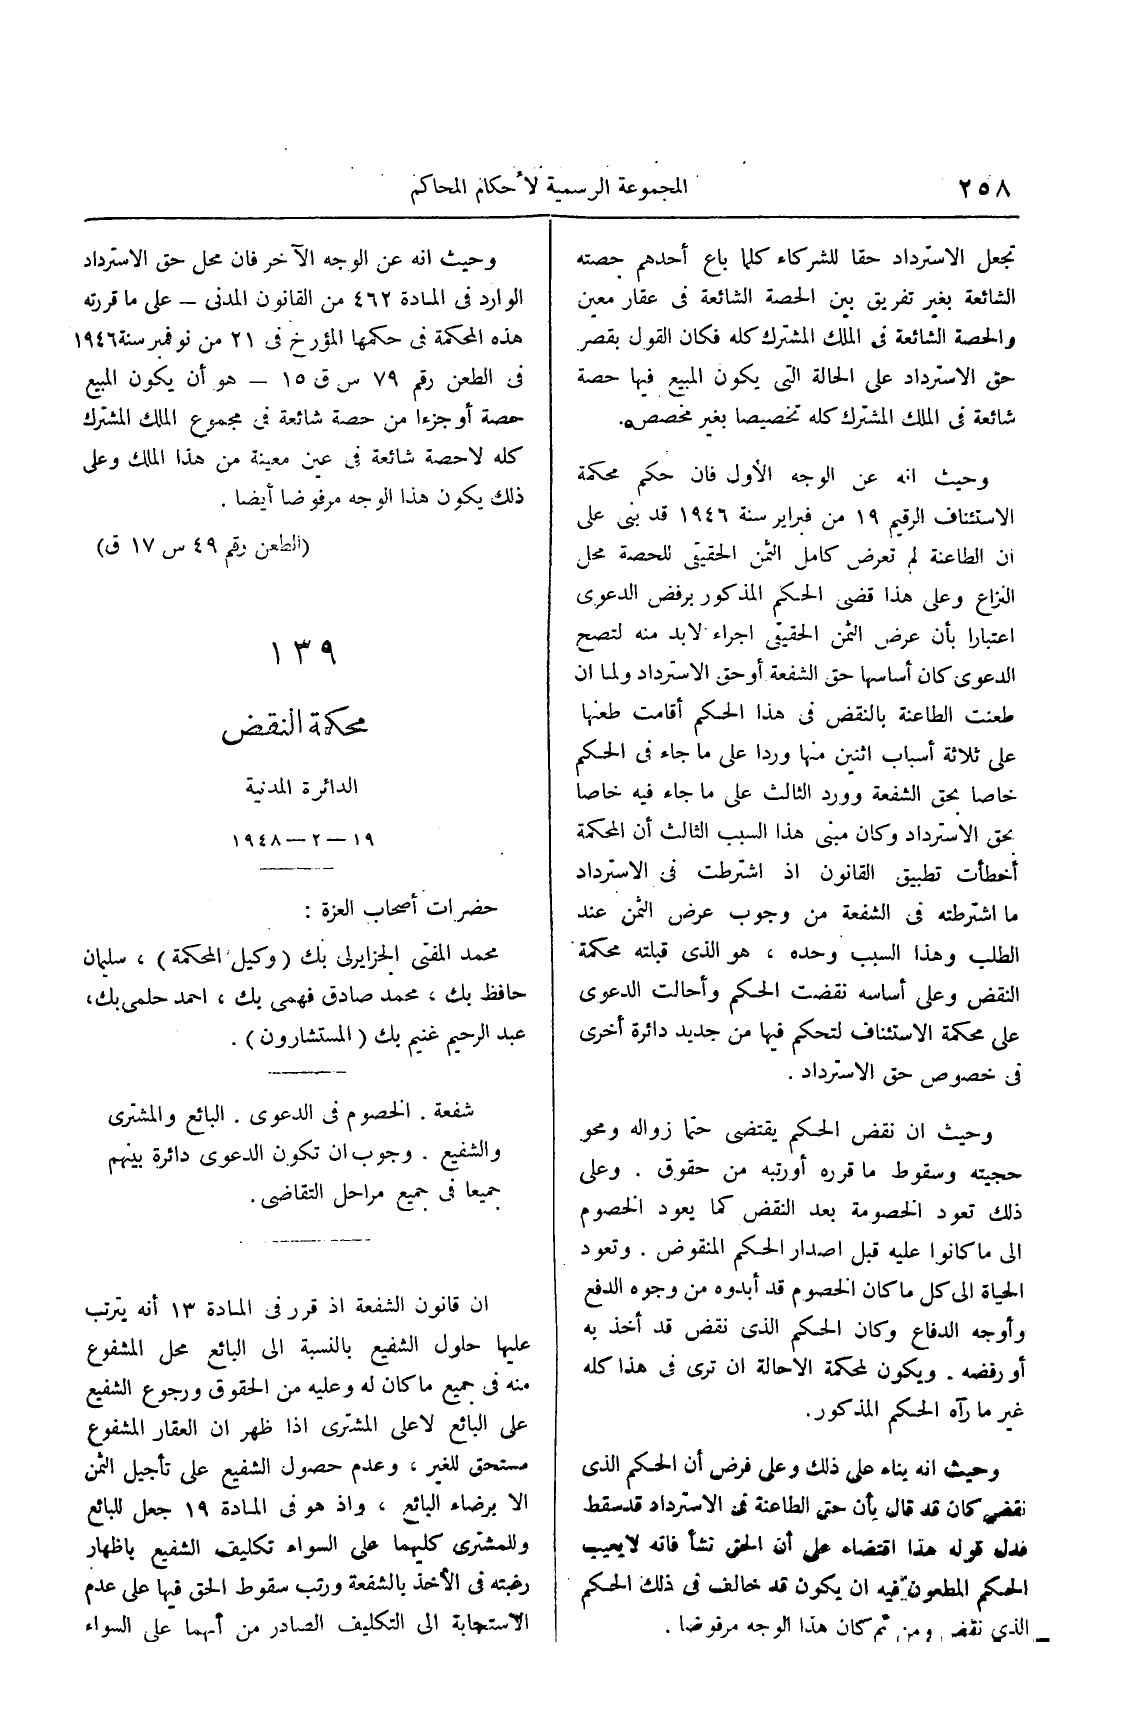 ٢٥٨
المجموعة الرسمية لأحكام المحاكم
تجعل الاسترداد حقا للشركاء كلما باع أحدهم حصته
الشائعة بغير تفريق بين الحصة الشائعة فى عقار معين
والحصة الشائعة فى الملك المشترك كله فكان القول بقصر
حق الاسترداد على الحالة التى يكون المبيع فيها حصة
شائعة فى الملك المشترك كله تخصيصا بغير مخصص.
وحيث انه عن الوجه الأول فان حكم محكمة
الاستئناف الرقيم ١٩ من فبراير سنة ١٩٤٦ قد بنى على
ان الطاعنة لم تعرض كامل الثمن الحقيقى للحصة محل
النزاع وعلى هذا قضى الحكم المذكور برفض الدعوى
اعتبارا بأن عرض الثمن الحقيقى اجراء لابد منه لتصح
الدعوى كان أساسها حق الشفعة أو حق الاسترداد ولما ان
طعنت الطاعنة بالنقض فى هذا الحكم أقامت طعنها
على ثلاثة أسباب اثنين منها وردا على ما جاء فى الحكم
خاصا بحق الشفعة وورد الثالث على ما جاء فيه خاصا
بحق الاسترداد وكان مبنى هذا السبب الثالث أن المحكمة
أخطأت تطبيق القانون اذ اشترطت فى الاسترداد
ما اشترطته فى الشفعة من وجوب عرض الثمن عند
الطلب وهذا السبب وحده ، هو الذى قبلته محكمة
النقض وعلى أساسه نقضت الحكم وأحالت الدعوى
على محكمة الاستئناف لتحكم فيها من جديد دائرة أخرى
فى خصوص حق الاسترداد .
وحيث ان نقض الحكم يقتضى حتما زواله ومحو
حجيته وسقوط ما قرره أورتبه من حقوق . وعلى
ذلك تعود الخصومة بعد النقض كما يعود الخصوم
الى ما كانوا عليه قبل اصدار الحكم المنقوض . وتعود
الحياة الى كل ما كان الخصوم قد أبدوه من وجوه الدفع
وأوجه الدفاع وكان الحكم الذى نقض قد أخذ به
أو رفضه . ويكون لمحكمة الاحالة ان ترى فى هذا كله
غير ما رآه الحكم المذكور.
وحيث انه بناء على ذلك وعلى فرض أن الحكم الذى
نقض كان قد قال بأن حق الطاعنة فى الاسترداد قد سقط
فدل قوله هذا اقتضاء على أن الحق نشأ فانه لا يعيب
الحكم المطعون فيه ان يكون قد خالف فى ذلك الحكم
الذى نقض ومن ثم كان هذا الوجه مرفوضا .
وحيث انه عن الوجه الآخر فان محل حق الاسترداد
الوارد فى المادة ٤٦٢ من القانون المدنى — على ما قررته
هذه المحكمة فى حكمها المؤرخ فى ٢١ من نوفمبر سنة ١٩٤٦
فى الطعن رقم ٧٩ س ق ١٥ — هو أن يكون المبيع
حصة أو جزءا من حصة شائعة فى مجموع الملك المشترك
كله لاحصة شائعة فى عين معينة من هذا الملك وعلى
ذلك يكون هذا الوجه مرفوضا أيضا .
(الطعن رقم ٤٩ س ١٧ ق)
١٣٩
محكمة النقض
الدائرة المدنية
١٩—٢—١٩٤٨
حضرات أصحاب العزة :
محمد المفتى الجزايرلى بك (وكيل المحكمة) ، سليمان
حافظ بك ، محمد صادق فهمى بك ، احمد حلمى بك،
عبد الرحيم غنيم بك (المستشارون) .
شفعة . الخصوم فى الدعوى . البائع والمشترى
والشفيع . وجوب ان تكون الدعوى دائرة بينهم
جميعا فى جميع مراحل التقاضى .
ان قانون الشفعة اذ قرر فى المادة ١٣ أنه يترتب
عليها حلول الشفيع بالنسبة الى البائع محل المشفوع
منه فى جميع ما كان له وعليه من الحقوق ورجوع الشفيع
على البائع لاعلى المشترى اذا ظهر ان العقار المشفوع
مستحق للغير ، وعدم حصول الشفيع على تأجيل الثمن
الا برضاء البائع ، واذ هو فى المادة ١٩ جعل للبائع
وللمشترى كليهما على السواء تكليف الشفيع باظهار
رغبته فى الأخذ بالشفعة ورتب سقوط الحق فيها على عدم
الاستجابة الى التكليف الصادر من أيهما على السواء